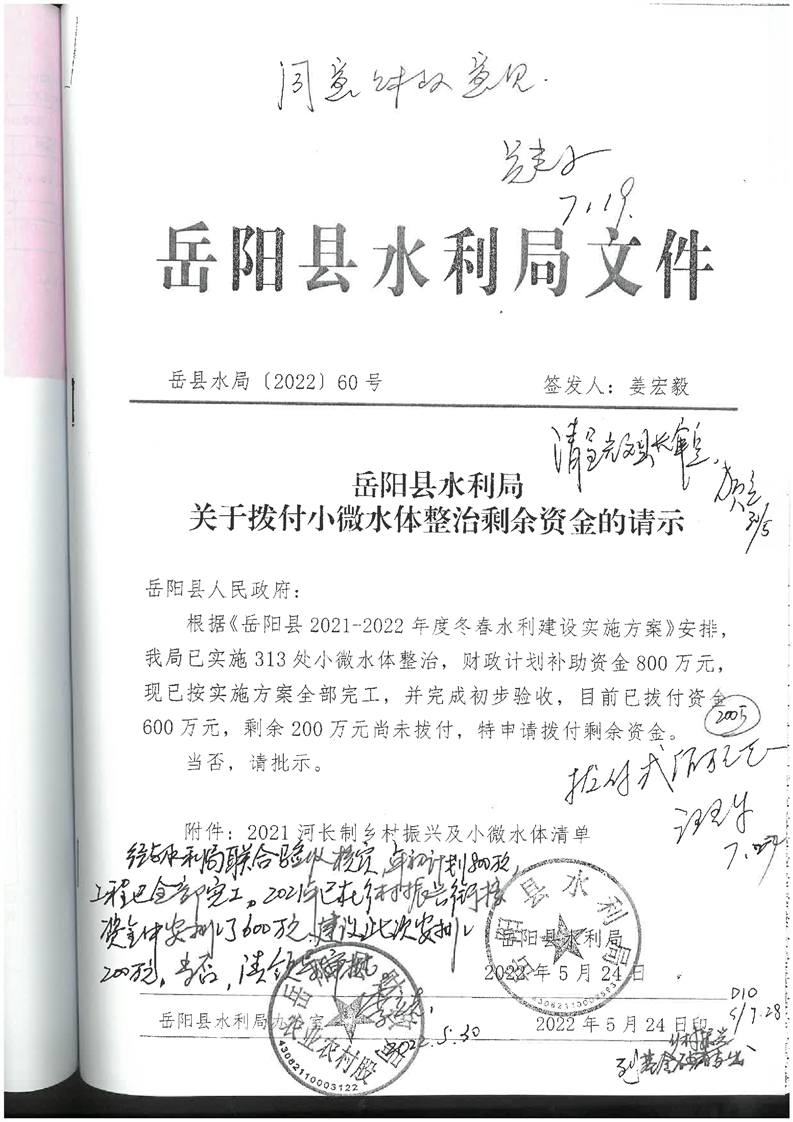 同意财政意见.
7.19.
岳阳县水利局文件
岳县水局〔2022〕60号
签发人：姜宏毅
岳阳县水利局
关于拨付小微水体整治剩余资金的请示
31/5
岳阳县人民政府：
根据《岳阳县2021-2022年度冬春水利建设实施方案》安排，
我局已实施313处小微水体整治，财政计划补助资金800万元，
现已按实施方案全部完工，并完成初步验收，目前已拨付资金
600万元，剩余200万元尚未拨付，特申请拨付剩余资金。
当否，请批示。
拨付贰佰万元
附件：2021河长制乡村振兴及小微水体清单
经与水利局联合验收核实，年初计划800万，
工程已全部完工。2021年已在乡村振兴衔接
资金中安排了600万元，建议此次安排
200万，当否，请领导审批
岳阳县水利局
2022年5月24日
岳阳县水利局
43062110002393
岳阳县水利局办公室
2022年5月24日印
2022.5.30
农业农村股
43062110003122
7.28
乡村振兴